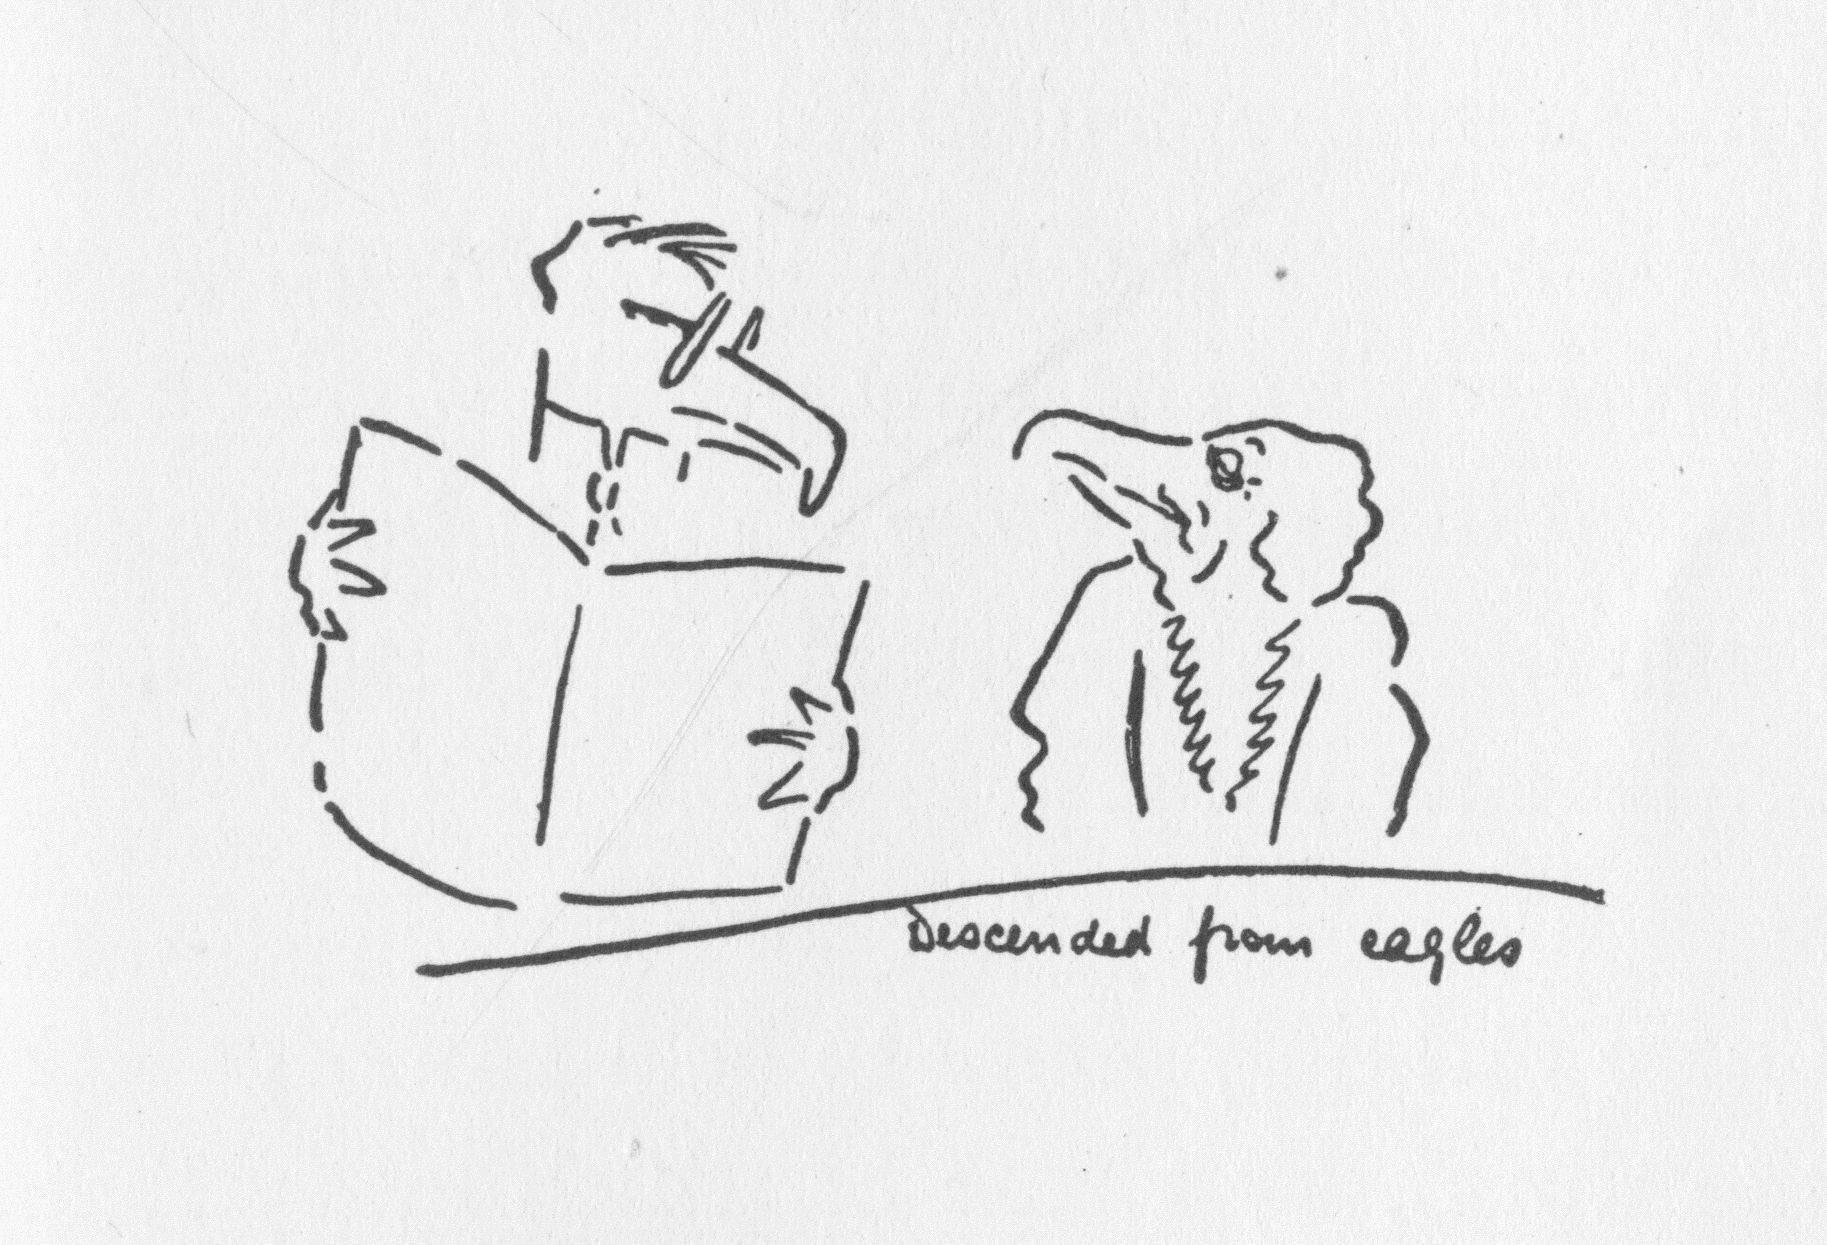 Descended from eagles